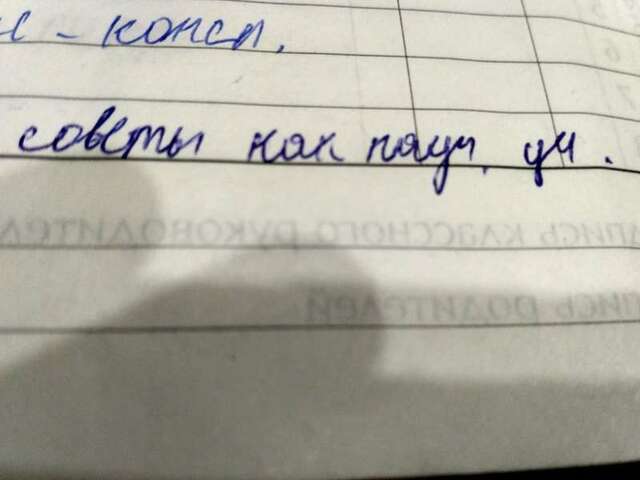 - консп.
советы как науч. уч.